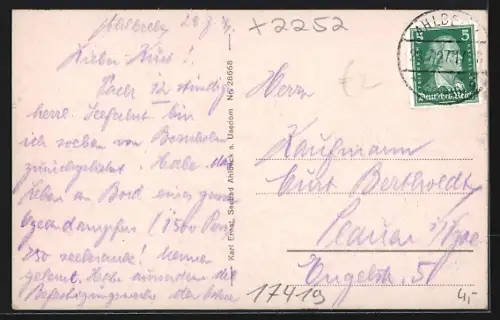 Ahlbeck, 28.7.
+2252
Lieber Kurt!
Nach 12 stündiger
herrl. Seefahrt bin
ich soeben von Bornholm
zurückgekehrt. Habe das
Leben an Bord eines
(1500 Pers
250 seekranke!
gelernt. Habe die
der
Karl Ernst, Seebad Ahlbeck a. Usedom No 28668
AHLBECK
5 5
Deutsches Reich
Herrn
Kaufmann
Curt Bertholdt
Plauen i/Vge
Engelstr. 5
17419
4,-